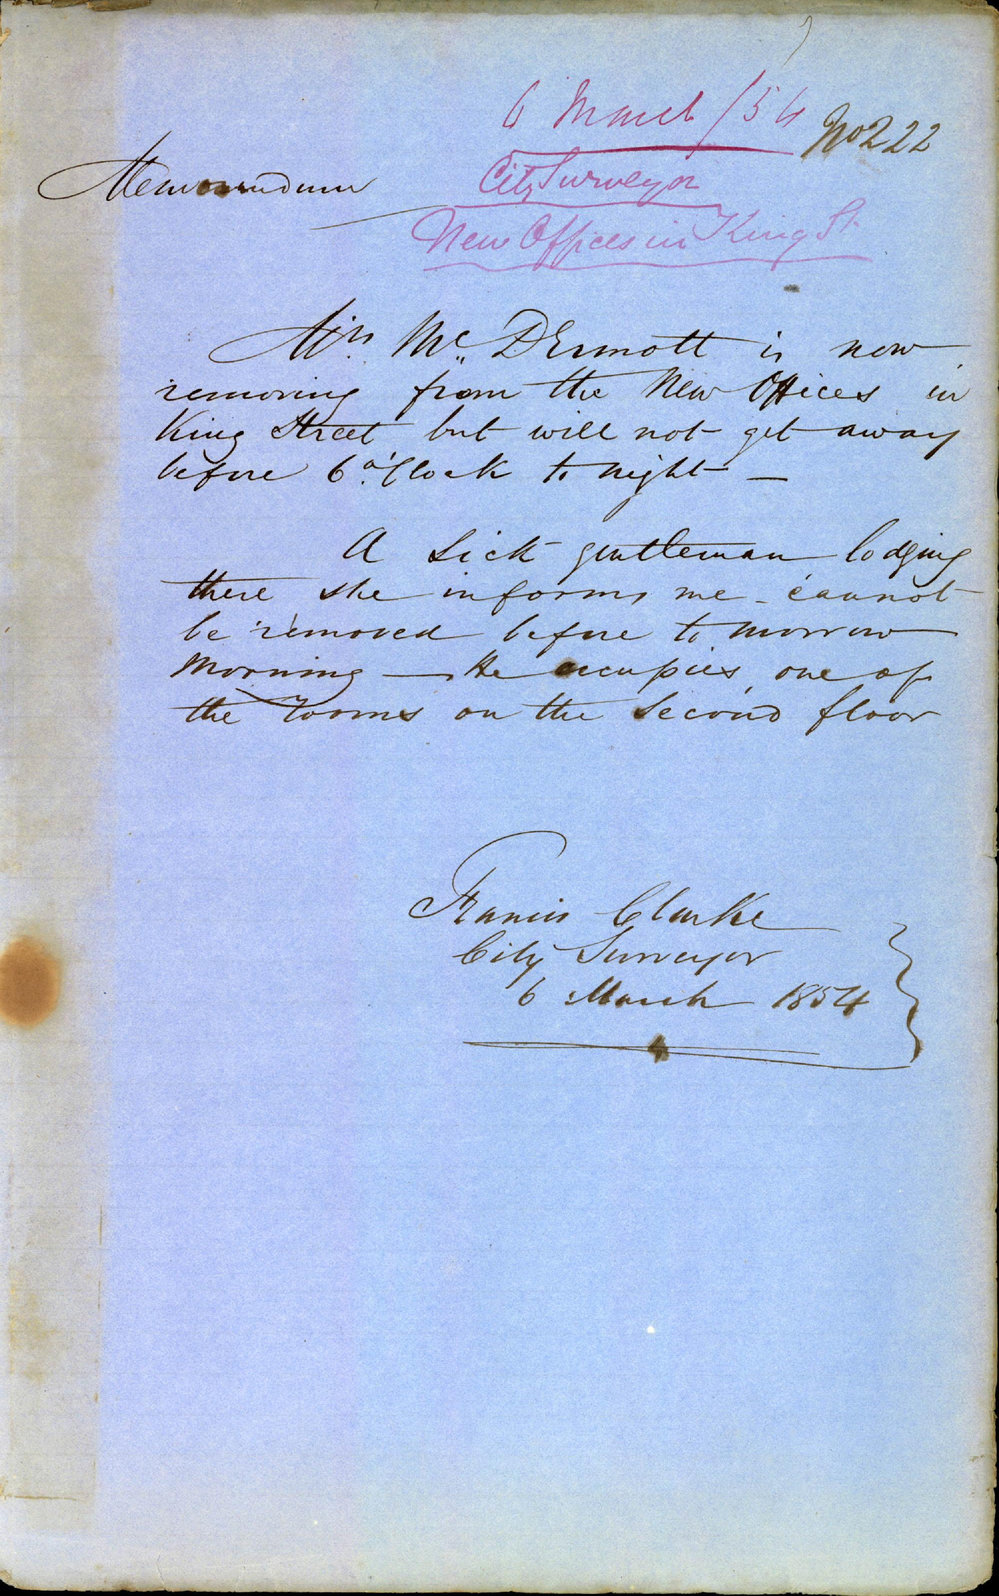 6 March /54
No 222
Memorandum
City Surveyor
New Offices in King St.
Mrs. Mc. Dermott is now
removing from the New Offices in
King Street but will not get away
before 6 o'Clock to night —
A sick gentleman lodging
there she informs me - cannot
be removed before to morrow
Morning — He occupies one of
the rooms on the second floor
Francis Clarke
City Surveyor
6 March 1854